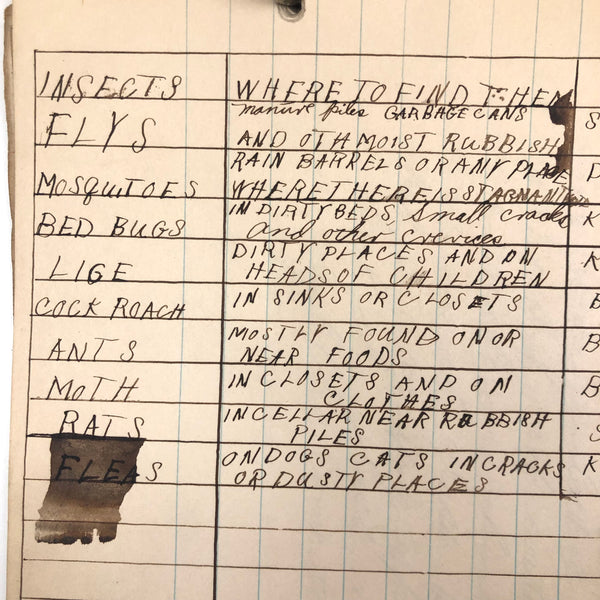 INSECTS WHERE TO FIND THEM
manure piles GARBAGE CANS
FLYS S
AND OTH MOIST RUBBISH
RAIN BARRELS OR ANY PLACE D
MOSQUITOES WHERE THERE IS STAGNANT
IN DIRTY BEDS small cracks K
BED BUGS and other crevices
DIRTY PLACES AND ON K
LIGE HEADS OF CHILDREN
COCK ROACH IN SINKS OR CLOSETS B
MOSTLY FOUND ON OR B
ANTS NEAR FOODS
MOTH IN CLOSETS AND ON B
CLOTHES
RATS IN CELLAR NEAR RUBBISH S
PILES
FLEAS ON DOGS CATS IN CRACKS K
OR DUSTY PLACES